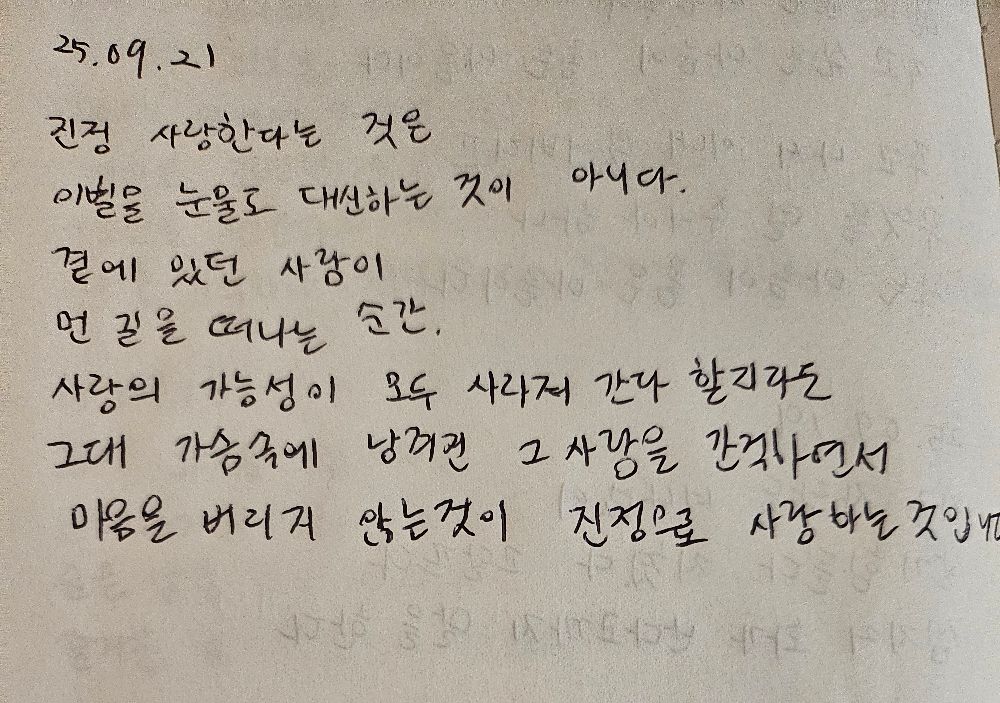 25.09.21
진정 사랑한다는 것은
이별을 눈물로 대신하는 것이 아니다.
곁에 있던 사람이
먼 길을 떠나는 순간.
사랑의 가능성이 모두 사라져 간다 할지라도
그대 가슴속에 남겨진 그 사랑을 간직하면서
마음을 버리지 않는것이 진정으로 사랑하는 것입